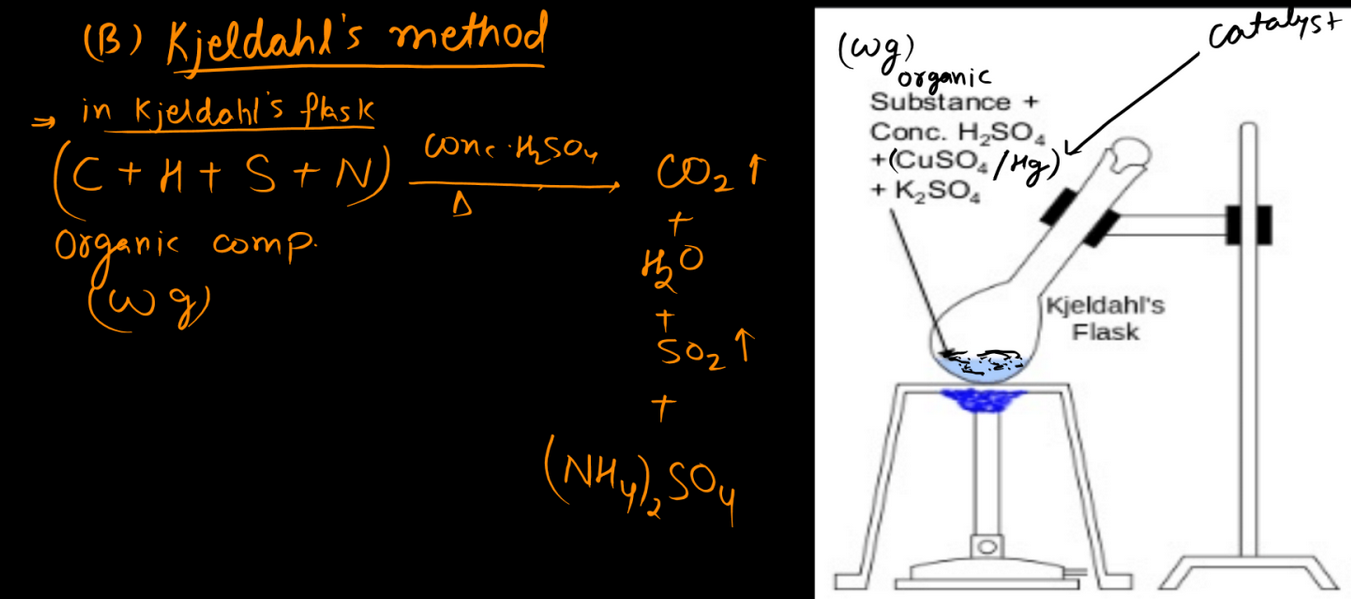 (B) Kjeldahl's method
⇒ in Kjeldahl's flask
(C + H + S + N) conc. H₂SO₄ CO₂ ↑
Δ
+
Organic comp.
H₂O
(w g)
+
SO₂ ↑
+
(NH₄)₂SO₄
catalyst
(wg)
organic
Substance +
Conc. H₂SO₄
+(CuSO₄/Hg)
+ K₂SO₄
Kjeldahl's
Flask